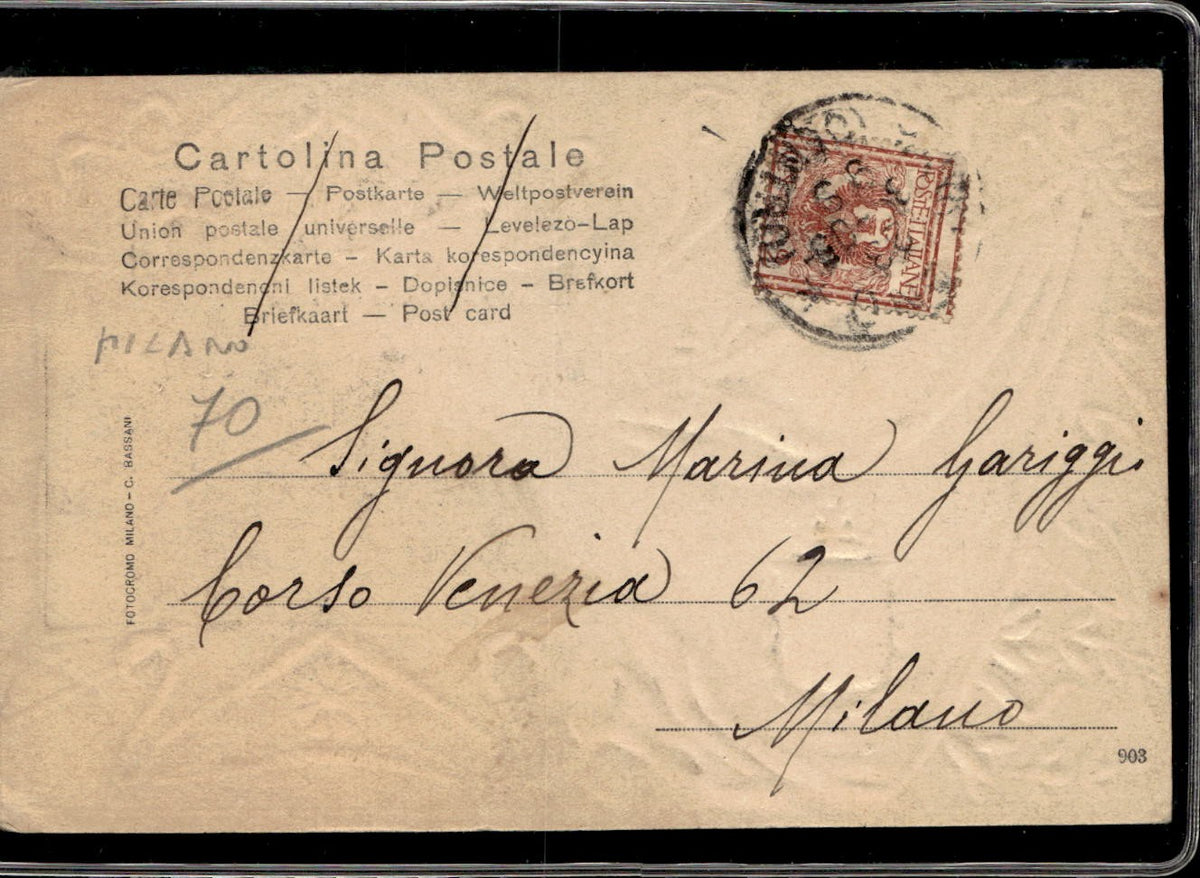 Cartolina Postale
Carte Postale — Postkarte — Weltpostverein
Union postale universelle — Levelezo-Lap
Correspondenzkarte — Karta korespondencyina
Korespondencni listek — Dopisnice — Brefkort
Briefkaart — Post card
POSTE ITALIANE
MILANO
70
Signora Marina Gariggi
Corso Venezia 62
Milano
FOTOCROMO MILANO - C. BASSANI
903